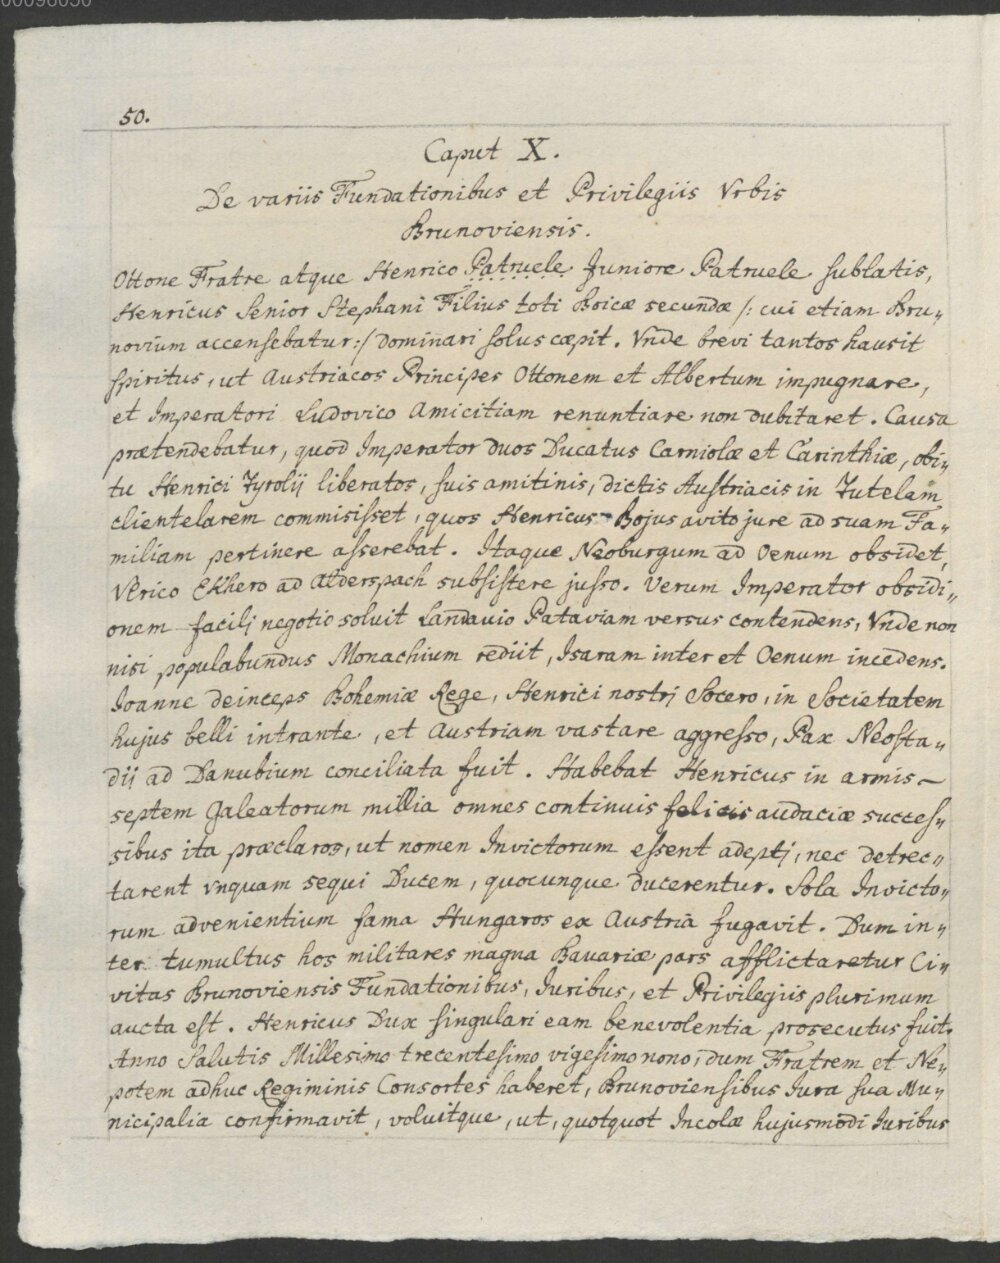 00096050
50.
Caput X.
De variis Fundationibus et Privilegiis Vrbis
Brunoviensis.
Ottone Fratre atque Henrico Patruele Juniore Patruele sublatis,
Henricus Senior Stephani Filius toti Boicæ secundæ /: cui etiam Bru„
novium accensebatur :/ Dominari solus cæpit. Vnde brevi tantos hausit
spiritus, ut Austriacos Principes Ottonem et Albertum impugnare,
et Imperatori Ludovico Amicitiam renuntiare non dubitaret. Causa
prætendebatur, quod Imperator duos Ducatus Carniolæ et Carinthiæ, obi„
tu Henrici Tyrolij liberatos, suis amitinis, dictis Austriacis in Tutelam
clientelarem commisisset, quos Henricus Bojus avito jure ad suam Fa„
miliam pertinere asserebat. Itaque Neoburgum ad Oenum obsidet,
Vlrico Ekhero ad Alderspach subsistere jusso. Verum Imperator obsidi„
onem facilj negotio soluit Landavio Pataviam versus contendens, Vnde non
nisi populabundus Monachium rediit, Isaram inter et Oenum incedens.
Ioanne deinceps Bohemiæ Rege, Henrici nostrj Socero, in Societatem
hujus belli intrante, et Austriam vastare aggresso, Pax Neosta„
dij ad Danubium conciliata fuit. Habebat Henricus in armis
septem Galeatorum millia omnes continuis felicis audaciæ succes„
sibus ita præclaros, ut nomen Invictorum essent adeptj, nec detrec„
tarent vnquam sequi Ducem, quocunque ducerentur. Sola Invicto„
rum advenientium fama Hungaros ex Austria fugavit. Dum in„
ter tumultus hos militares magna Bavariæ pars afflictaretur Ci„
vitas Brunoviensis Fundationibus, Iuribus, et Privilegiis plurimum
aucta est. Henricus Dux singulari eam benevolentia prosecutus fuit.
Anno Salutis Millesimo trecentesimo vigesimo nono, dum Fratrem et Ne„
potem adhuc Regiminis Consortes haberet, Brunoviensibus Iura sua Mu„
nicipalia confirmavit, voluitque, ut, quotquot Incolæ hujusmodi Iuribus